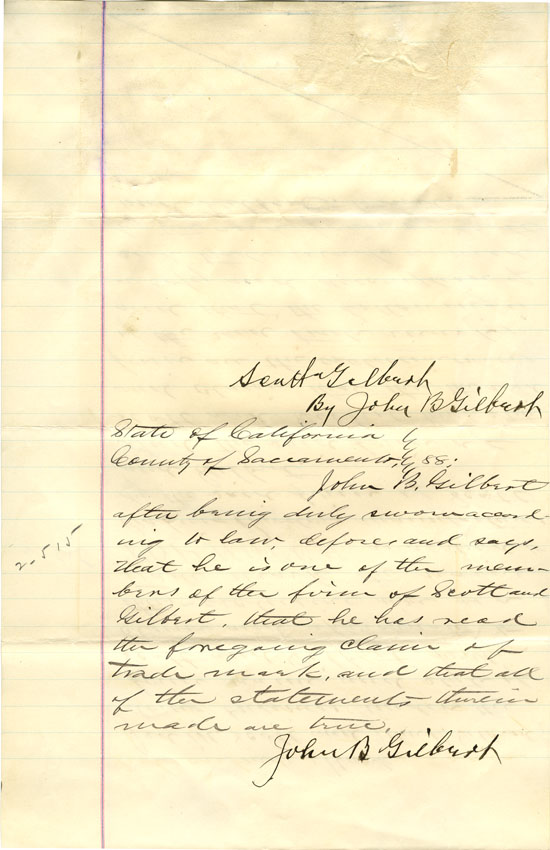 Scott & Gilbert
By John B Gilbert
State of California }
County of Sacramento, } SS:
John B. Gilbert
after being duly sworn accord-
ing to law, deposes and says,
that he is one of the mem-
bers of the firm of Scott and
Gilbert, that he has read
the foregoing claim of
trade mark, and that all
of the statements therein
made are true.
John B Gilbert
2-515